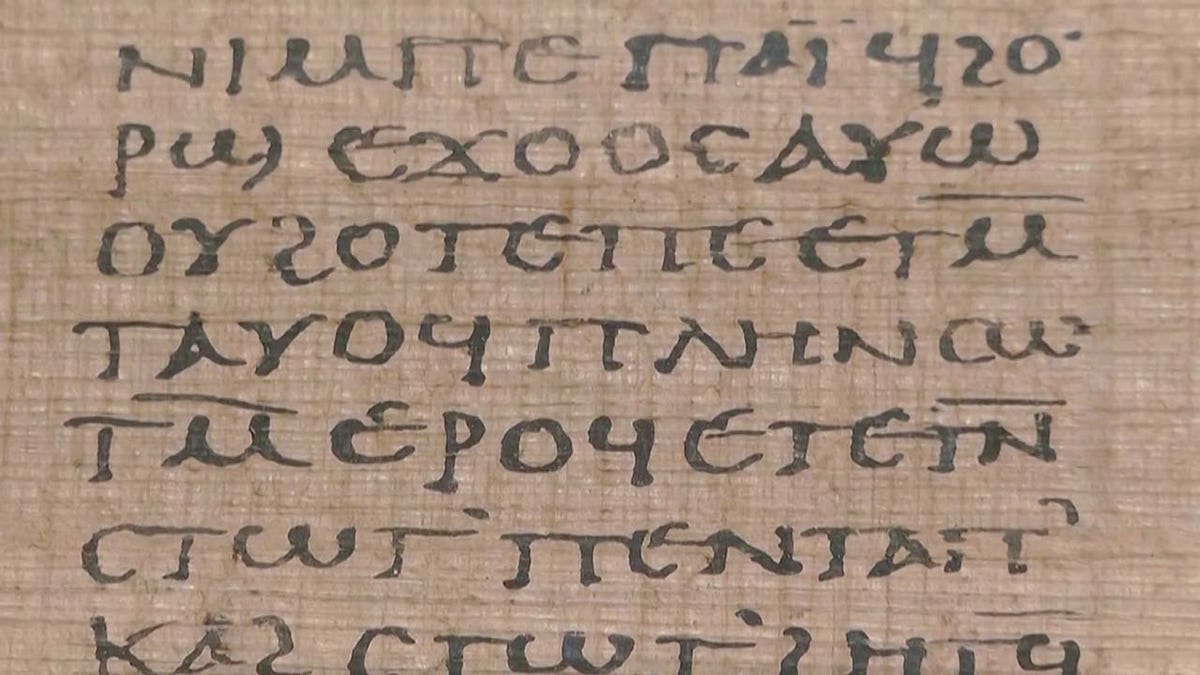 ⲛⲓⲙⲡⲉⲡⲁⲓ̈ϥϩⲟ
ⲣϣⲉϫⲟⲟⲥⲁⲩⲱ
ⲟⲩϩⲟⲧⲉⲡⲉⲉⲧⲙ̅
ⲧⲁⲩⲟϥⲡⲗⲏⲛⲥⲱ
ⲧⲙ̅ⲉⲣⲟϥⲉⲧⲉⲧⲛ̅
ⲥⲧⲱⲧ’ⲡⲉⲛⲧⲁⲡ’
ⲕⲁϩⲥⲧⲱⲧ’ϩⲏⲧϥ̅